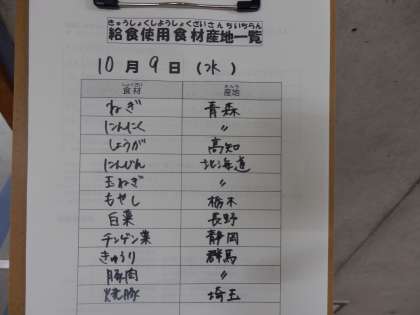 きゅうしょくしようしょくざいさんちいちらん
給食使用食材産地一覧
10月9日(水)
しょくざい さんち
食材 産地
ねぎ 青森
にんにく 〃
しょうが 高知
にんじん 北海道
玉ねぎ 〃
もやし 栃木
白菜 長野
チンゲン菜 静岡
きゅうり 群馬
豚肉 〃
焼豚 埼玉